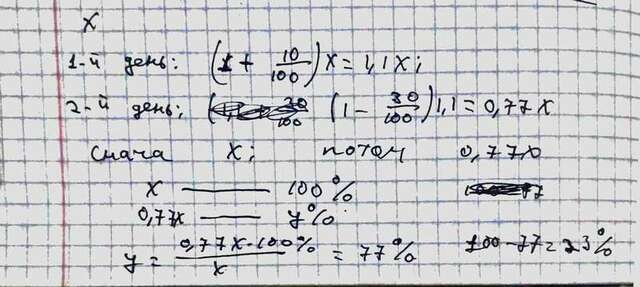 x
1-й день: (1 + 10/100) x = 1,1x;
2-й день; ( 30/100 (1 - 30/100) 1,1 = 0,77x
Снача x; потом 0,77x
x — 100%
0,77x — y%
y = 0,77x·100%/x = 77% 100-77=23%